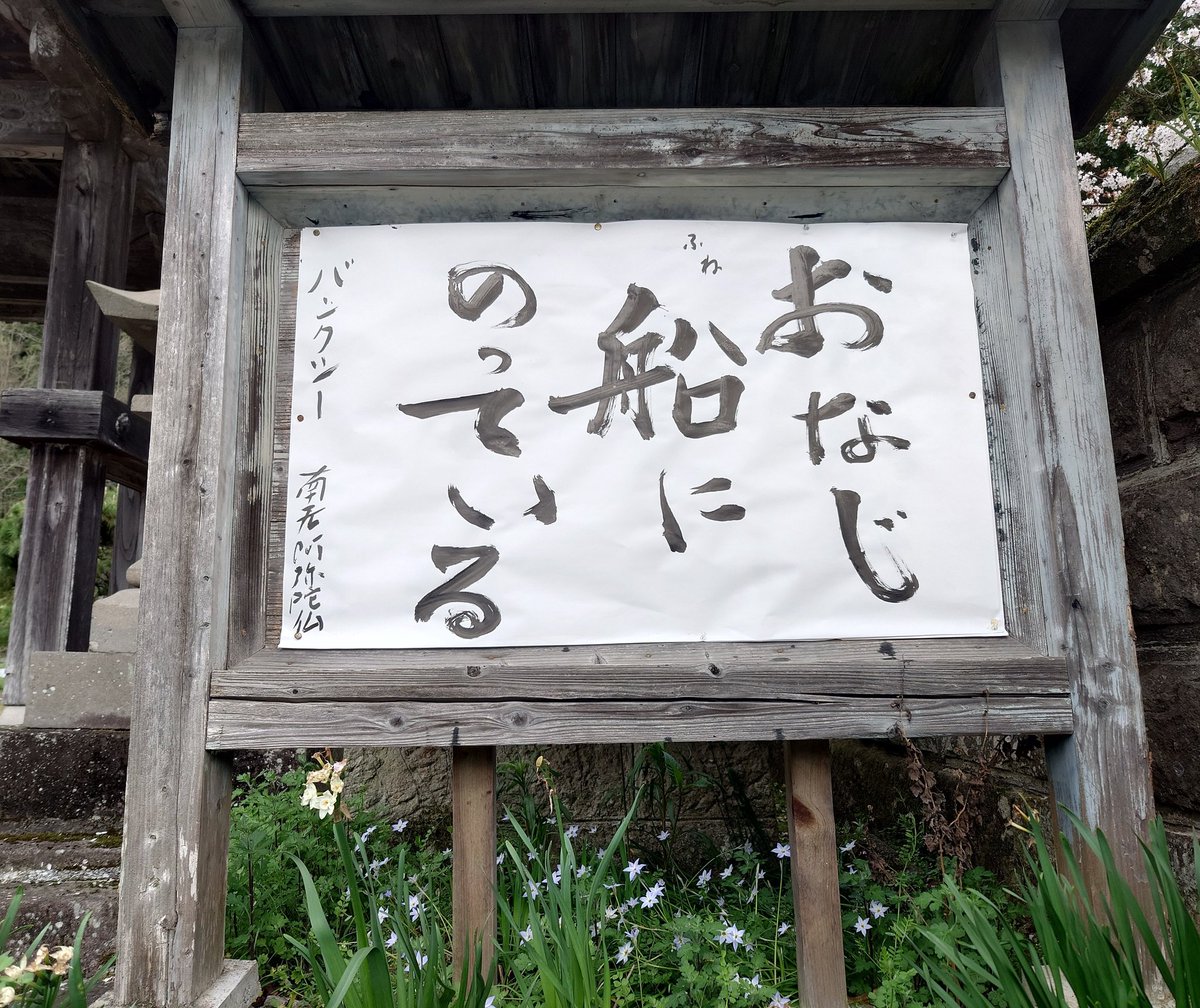 おなじ
船に
ふね
のっている
バンクシー 南無阿弥陀仏